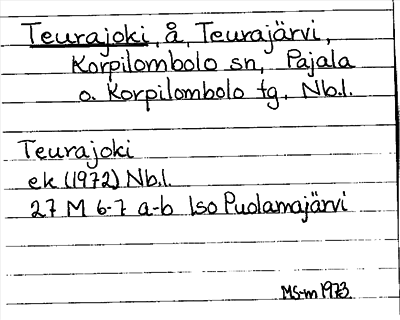 Teurajoki, å, Teurajärvi,
Korpilombolo sn, Pajala
o. Korpilombolo tg, Nb.l.
Teurajoki
ek (1972) Nb.l.
27 M 6-7 a-b Iso Puolamajärvi
MS-m 1973